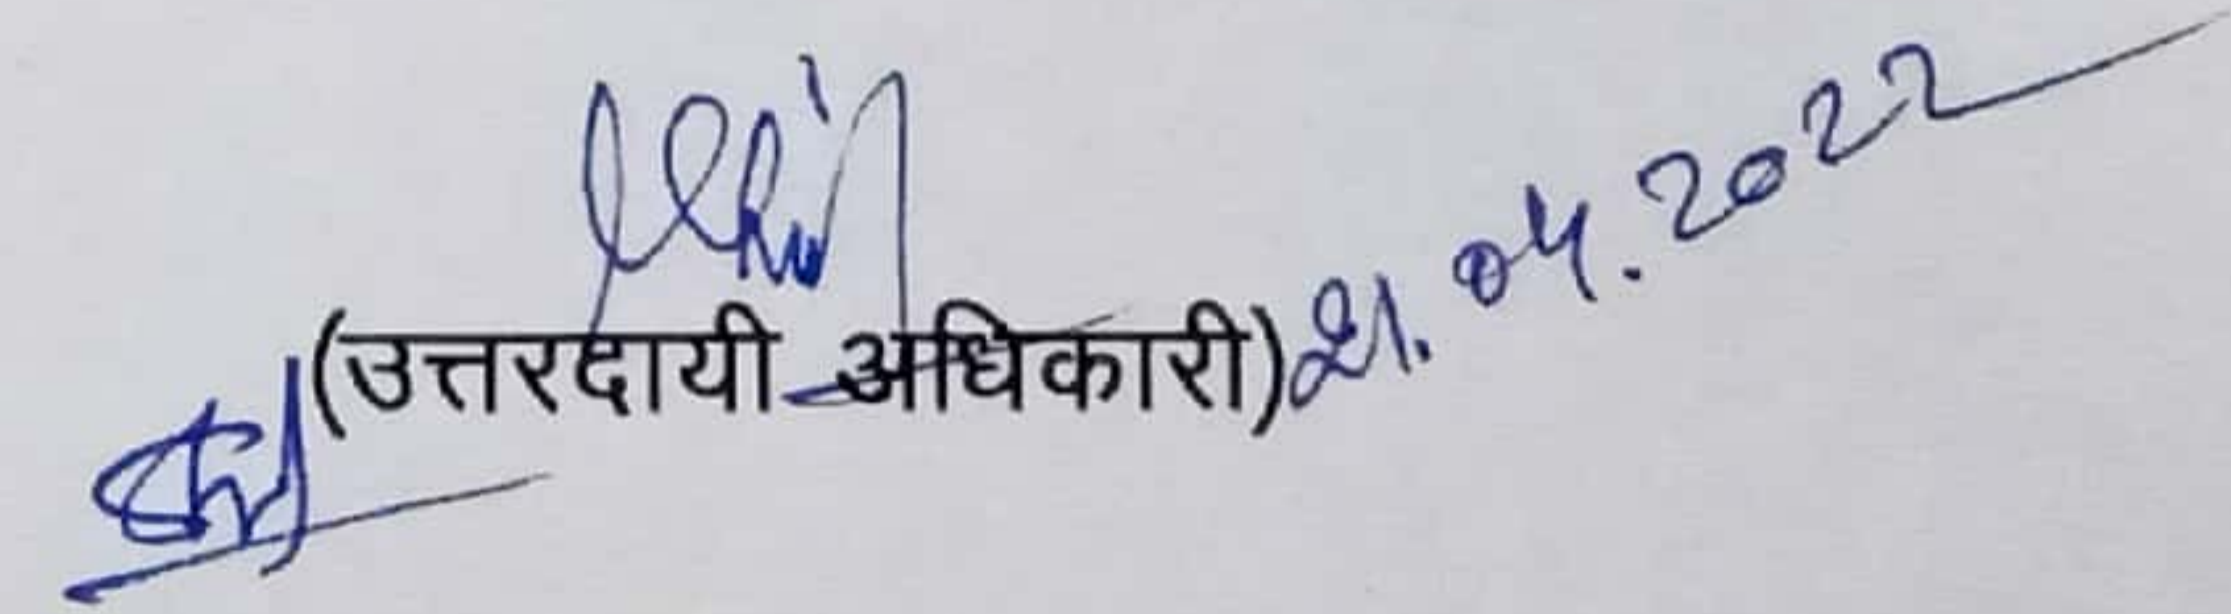 (उत्तरदायी अधिकारी) 21.04.2022